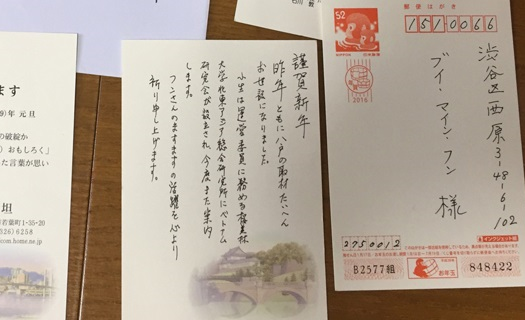 ます
年 元旦
の破綻か
) おもしろく」
た言葉が思い
坦
若葉町1-35-20
526) 6258
com.home.ne.jp
謹賀新年
昨年、ともに八戸の取材、たいへん
お世話になりました。
小生は運営委員に務める桜美林
大学北東アジア総合研究所にベトナム
研究会が設立され、今度また案内
します。
フンさんのますますの活躍を心より
祈り申し上げます。
郵便はがき
52
1510066
2016
渋谷区西原3-48-6-102
ブイ・マイン・フン 様
2750012
インクジェット紙
B2577組
お年玉
848422